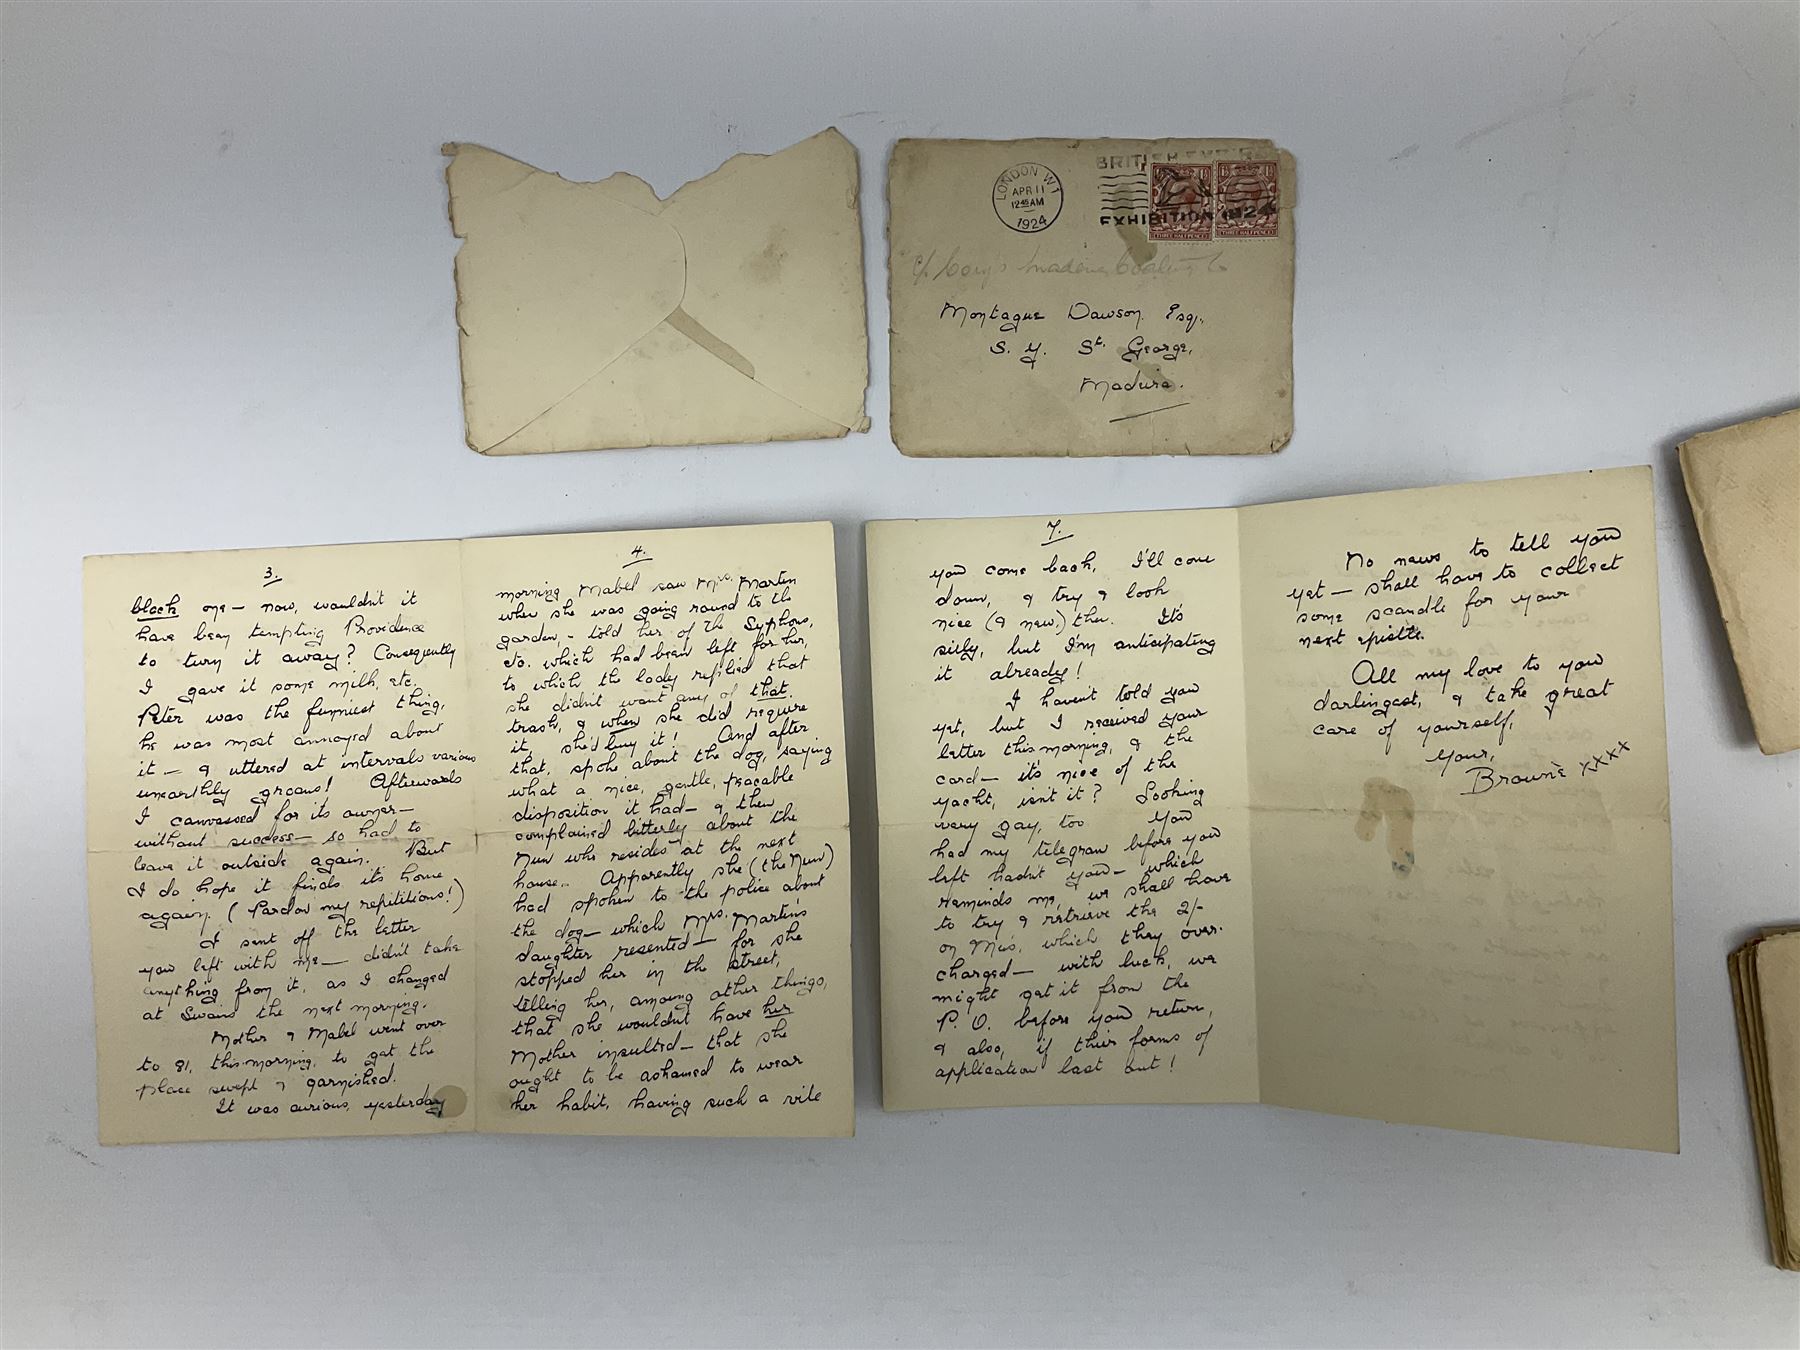 LONDON W1
APR 11
12 45 AM
1924
BRITISH EMPIRE
EXHIBITION 1924
THREE HALFPENCE
THREE HALFPENCE
c/o Cory's Madeira Coaling Co
Montague Dawson Esq.,
S. Y. St. George,
Madiera.
3.
black one — now, wouldn't it
have been tempting Providence
to turn it away? Consequently
I gave it some milk, etc.
Peter was the funniest thing,
he was most annoyed about
it — & uttered at intervals various
unearthly groans! Afterwards
I canvassed for its owner —
without success — so had to
leave it outside again. But
I do hope it finds its home
again. (Pardon my repititions!)
I sent off the letter
you left with me — didn't take
anything from it, as I changed
at Swains the next morning.
Mother & Mabel went over
to 81, this morning, to get the
place swept & garnished.
It was curious, yesterday
4.
morning Mabel saw Mrs. Martin
when she was going round to the
garden, - told her of the Syphons,
etc. which had been left for her,
to which the lady replied that
she didn't want any of that.
trash, & when she did require
it, she'd buy it! And after
that, spoke about the dog, saying
what a nice, gentle, peacable
disposition it had — & then
complained bitterly about the
Nun who resides at the next
house. Apparently she (the Nun)
had spoken to the police about
the dog — which Mrs. Martin's
daughter resented — for she
stopped her in the street,
telling her, among other things,
that she wouldn't have her
Mother insulted — that she
ought to be ashamed to wear
her habit, having such a vile
7.
you come back, I'll come
down, & try & look
nice (& new,) then. It's
silly, but I'm anticipating
it already!
I haven't told you
yet, but I received your
letter this morning, & the
card — it's nice of the
yacht, isn't it? Looking
very gay, too. You
had my telegram before you
left hadn't you — which
reminds me, we shall have
to try & retrieve the 2/-
on Mc's, which they over-
charged — with luck, we
might get it from the
P. O. before you return,
& also, if their forms of
application last out!
No news to tell you
yet — shall have to collect
some scandle for your
next epistle.
All my love to you
darlingest, & take great
care of yourself,
Your,
Brownie xxxx